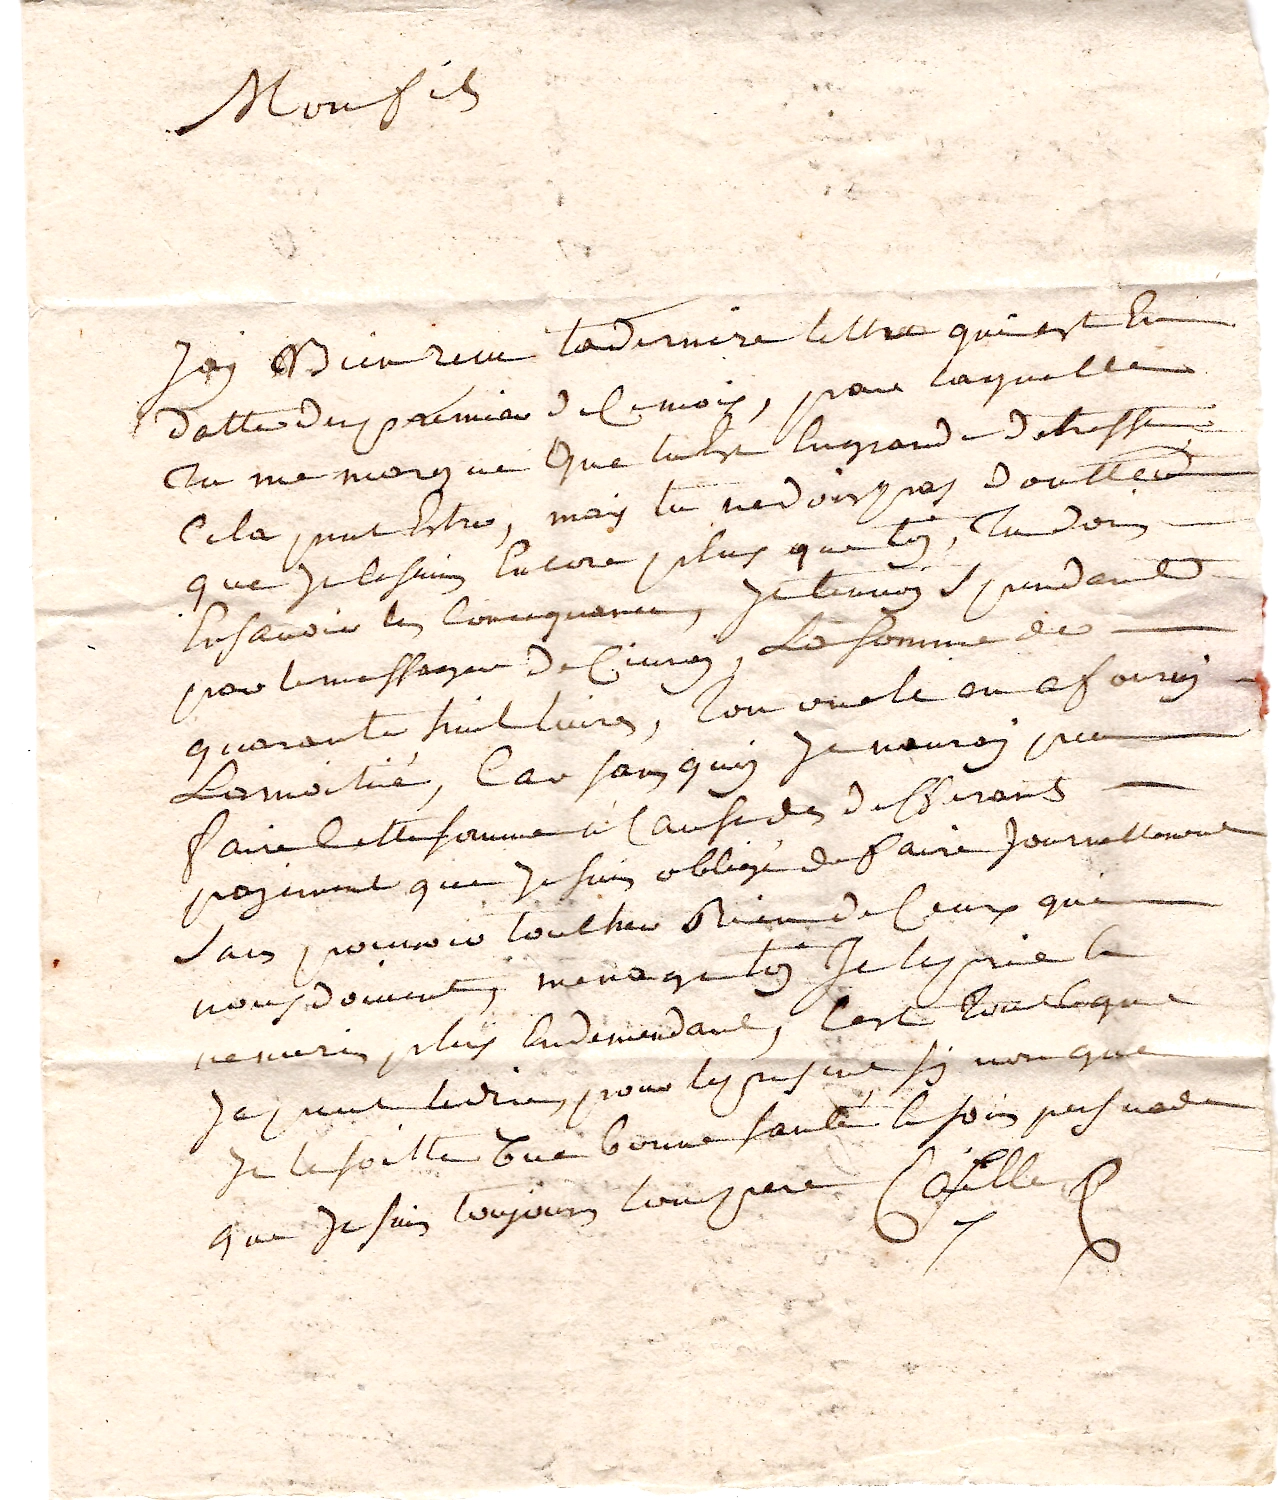 Mon fils
Jay Bien receu ta derniere lettre qui est En
datte du premier de Ce mois, par laquelle
Tu me marque que tu Est En grande detresse
Cela peut Estre, mais tu ne dois pas doutter
que Je le suis Encore plus que toy, Tu dois
En savoir les Consequences, Je tenvoy Cependant
par le messager de Civray, La somme de
quarante huit livres, Ton oncle en a fourny
La moitié, Car sans quoy Je naurois peu
faire Cette somme a Cause des differants
payement que Je suis obligé de faire Journellement
sans pouvoir toucher Rien de Ceux qui
nous doivent, menage toy Je te prie
plus En demendant, Cest Tout Ce que
Je peut te dire, pour le present, sy non que
Je te soitte Une bonne santé, soit persuadé
que Je suis toujours ton pere Cafille